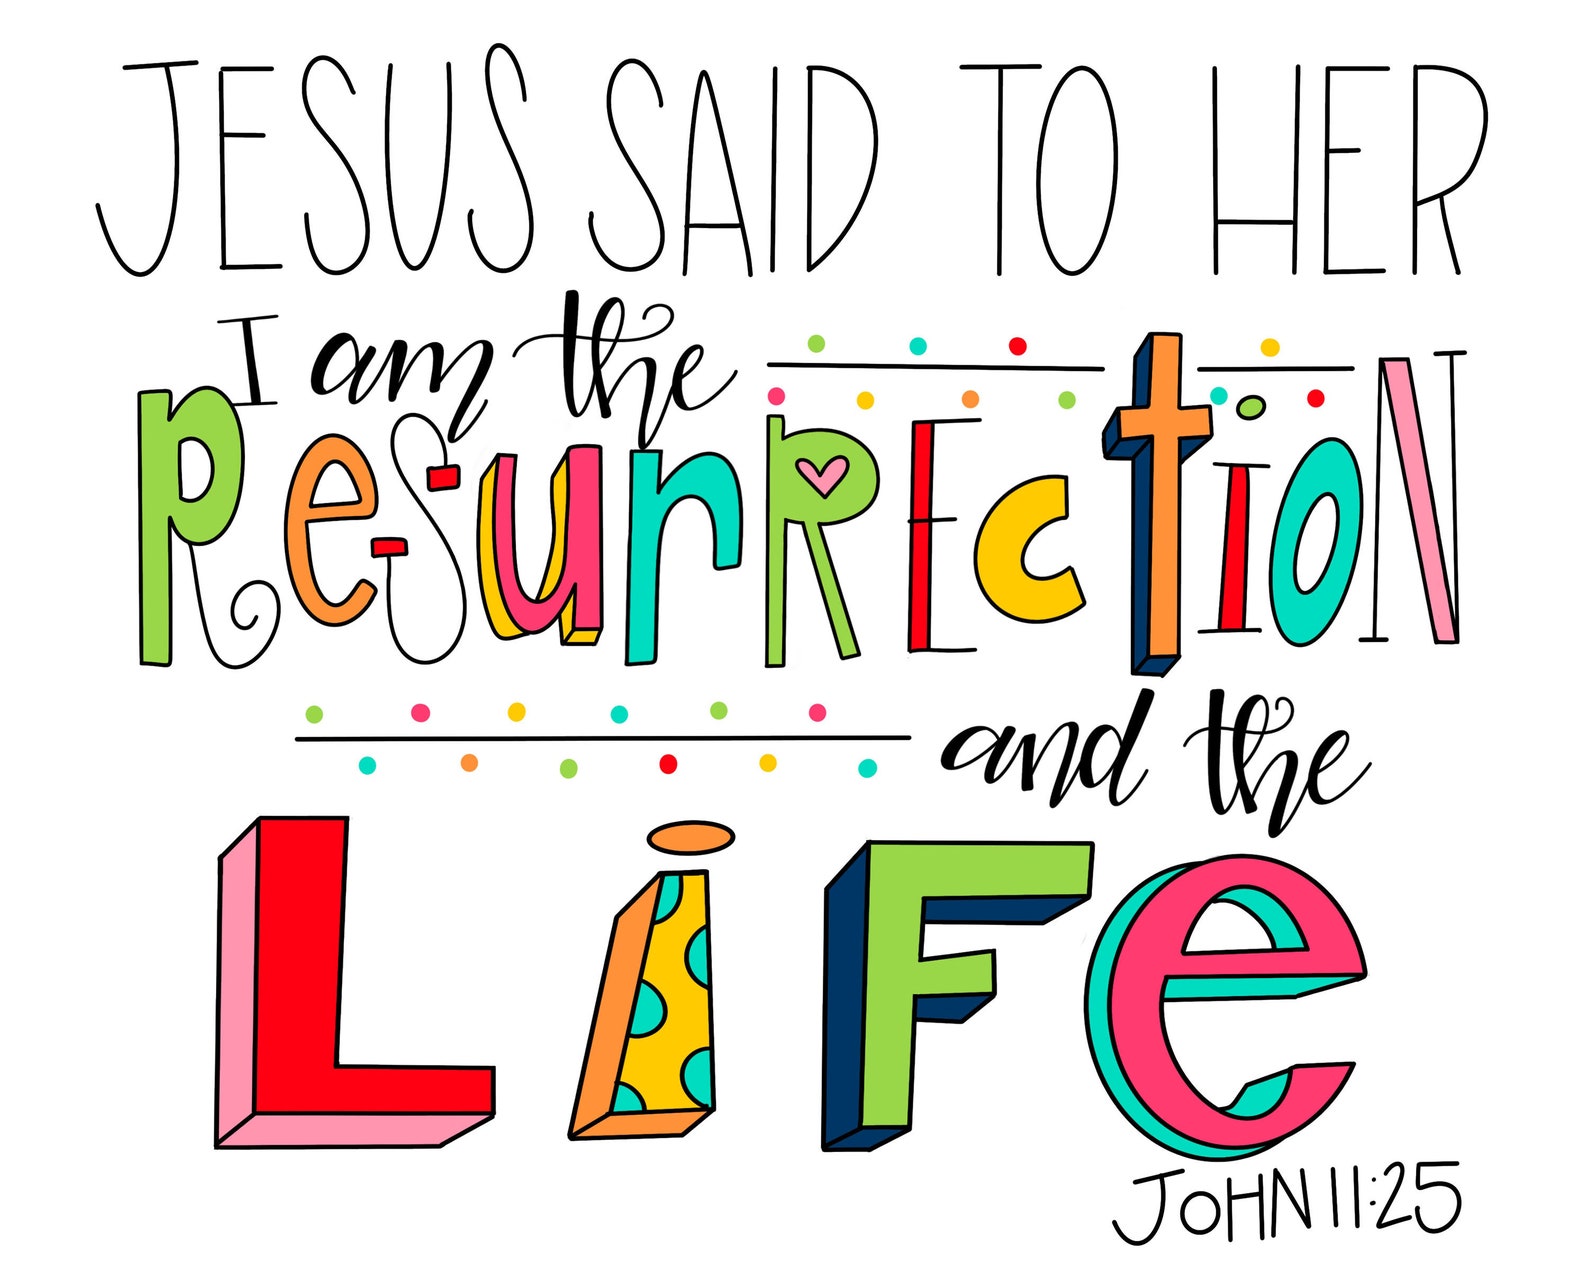 JESUS SAID TO HER
I am the
ResurRECtiON
and the
LiFe
JOHN 11:25